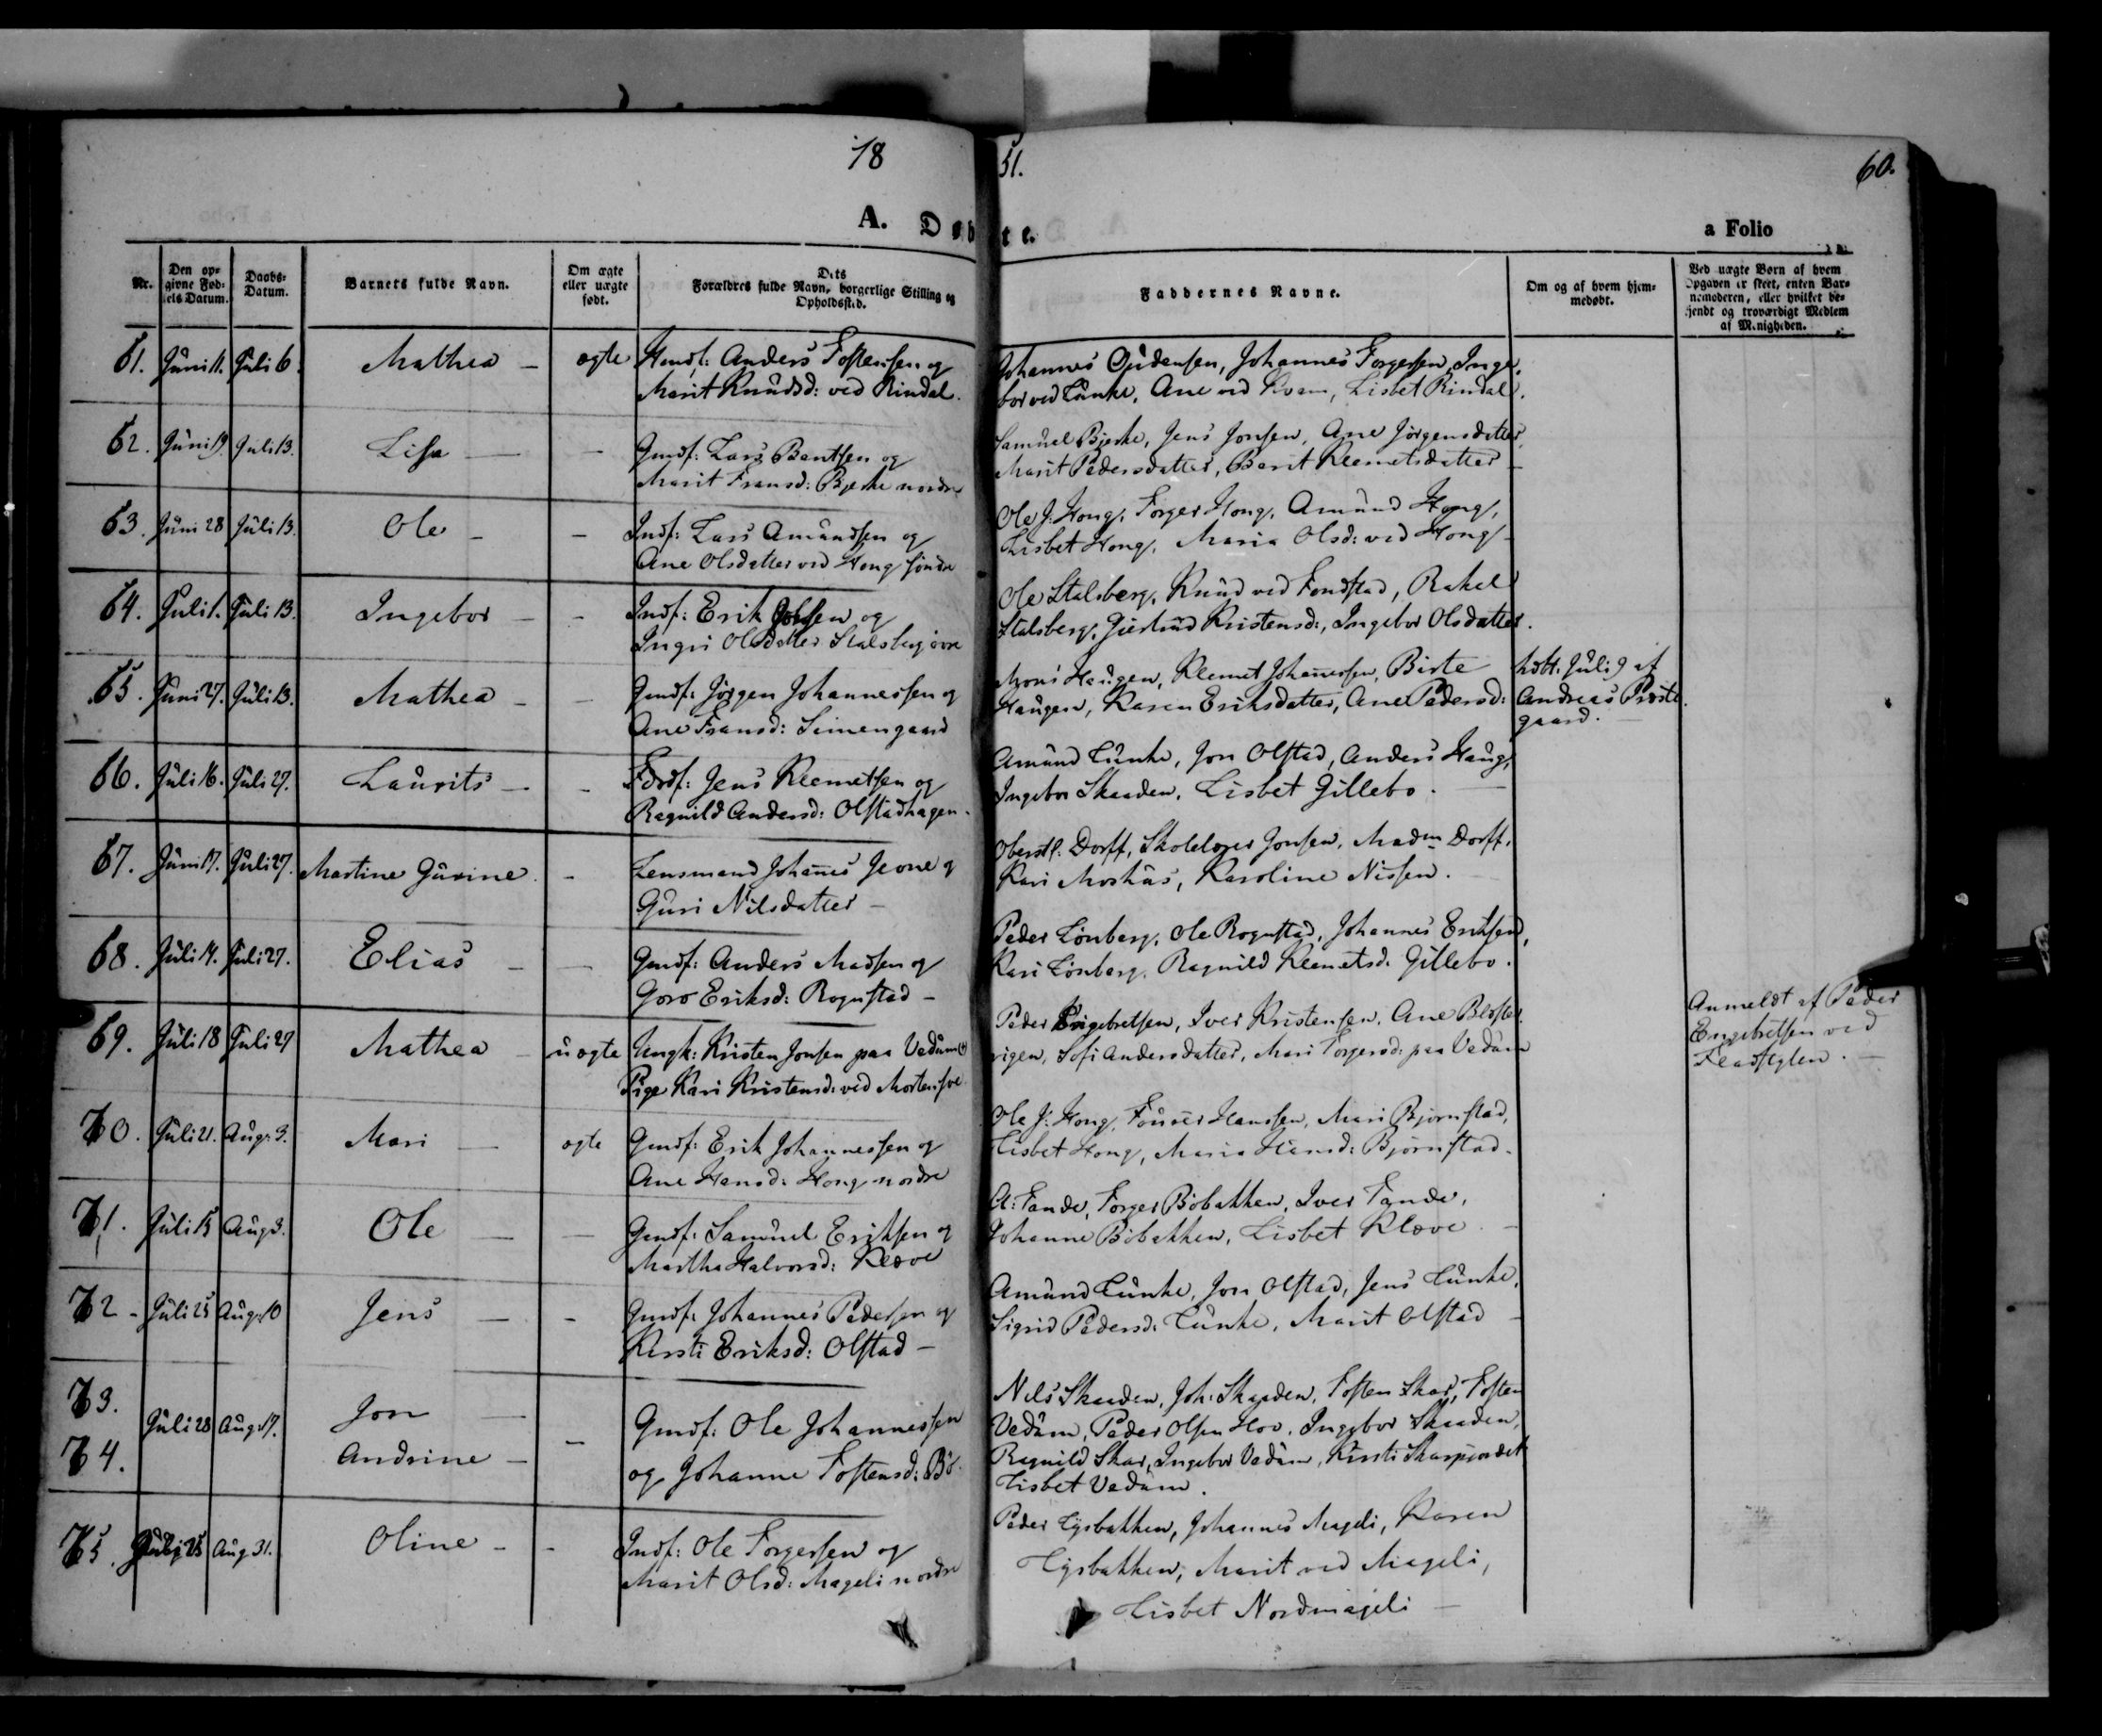 18
51.
60.
A. Døb
te.
a Folio
Nr.
Den op-
givne Fød-
sels Datum.
Daabs-
Datum.
Barnets fulde Navn.
Om ægte
eller uægte
født.
Dets
Forældres fulde Navn, borgerlige Stilling og
Opholdssted.
Faddernes Navne.
Om og af hvem hjem-
medøbt.
Ved uægte Børn af hvem
Opgaven er skeet, enten Bar-
nemoderen, eller hvilket be-
kjendt og troværdigt Medlem
af Menigheden.
61. Juni 11. Juli 6. Mathea - ægte Anders Tostensen og
Marit Knudsd: ved Rindal.
Johannes Gudensen, Johannes Torgersen, Inge-
bor ved Lunke, Ane ved Kvam, Lisbet Rindal.
62. Juni 19. Juli 13. Lisa - - Gmdf: Lars Bentsen og
Marit Fransd: Bjerke nordre
Samuel Bjerke, Jens Jonsen, Ane Jörgensdatter,
Marit Pedersdatter, Berit Klemetsdatter -
63. Juni 28 Juli 13. Ole - - Indf: Lars Amundsen og
Ane Olsdatter ved Hong söndre
Ole J: Hong, Torger Hong, Amund Hong,
Lisbet Hong, Maria Olsd: ved Hong -
64. Juli 1. Juli 13. Ingebor - - Indf: Erik Johsen og
Ingri Olsdatter Stalsberg övre
Ole Stalsberg, Knud ved Fondstad, Rakel
Stalsberg, Giertrud Kristensd:, Ingebor Olsdatter.
65. Juni 27. Juli 13. Mathea - - Gmdf: Jörgen Johannessen og
Ane Fransd: Simengaard
Haugen, Klemet Johanessen, Birte
Haugen, Karen Eriksdatter, Ane Pedersd:
Juli 9 af
Andreas Præste-
gaard.
66. Juli 16. Juli 27. Laurits - - Jens Klemetsen og
Ragnild Andersd: Olstadhagen.
Amund Lunke, Jon Olstad, Anders Haug,
Ingebor Skaaden, Lisbet Gillebo.
67. Juni 17. Juli 27. Martine Gurine. - Lensmand Johanes Jevne og
Guri Nilsdatter -
Oberstl: Dorff, Skolelærer Jonsen, Madm Dorff,
Kari Moshus, Karoline Nissen.
68. Juli 14. Juli 27. Elias - - Gmdf: Anders Madsen og
Goro Eriksd: Rognstad -
Peder Lönberg, Ole Rognstad, Johannes Eriksen,
Kari Lönberg, Ragnild Klemetsd. Gillebo.
69. Juli 18 Juli 27 Mathea - uægte Ungk: Kristen Jonsen paa Vedum og
Pige Kari Kristensd: ved
Peder Engebretsen, Iver Kristensen, Ane
Sofi Andersdatter, Mari Torgersd: paa Vedum
Anmeldt af Peder
Engebretsen ved
70. Juli 21. Aug: 3. Mari - ægte Gmdf: Erik Johannessen og
Ane Hansd: Hong nordre
Ole J: Hong, Hanssen, Mari Bjørnstad,
Lisbet Hong, Maria Hansd: Bjørnstad.
71. Juli 15 Aug 3. Ole - - Gmdf: Samuel Eriksen og
Martha Halvorsd: Kløve
A: Tande, Torger Böbakken, Iver Tande,
Johanne Böbakken, Lisbet Kløve -
72 - Juli 25 Aug. 10 Jens - - Gmdf: Johannes Pedersen og
Kersti Eriksd: Olstad -
Amund Lunke, Jon Olstad, Jens Lunke,
Sigrid Pedersd: Lunke, Marit Olstad -
73. Juli 28 Aug. 17. Jon - Gmdf: Ole Johannessen
74. Andrine - - og Johanne Tostensd: Bö.
Nils Skaaden, Joh: Skaaden, Tosten Skar, Tosten
Vedum, Peder Olsen Hov, Ingebor Skaaden,
Ragnild Skar, Ingebor Vedum, Kirsti
Lisbet Vedum.
75. Juli 25 Aug 31. Oline - - Indf: Ole Torgersen og
Marit Olsd: Mageli nordre
Peder Lysbakken, Johannes Mageli, Karen
Lysbakken, Marit ved Mageli,
Lisbet Nordmageli -